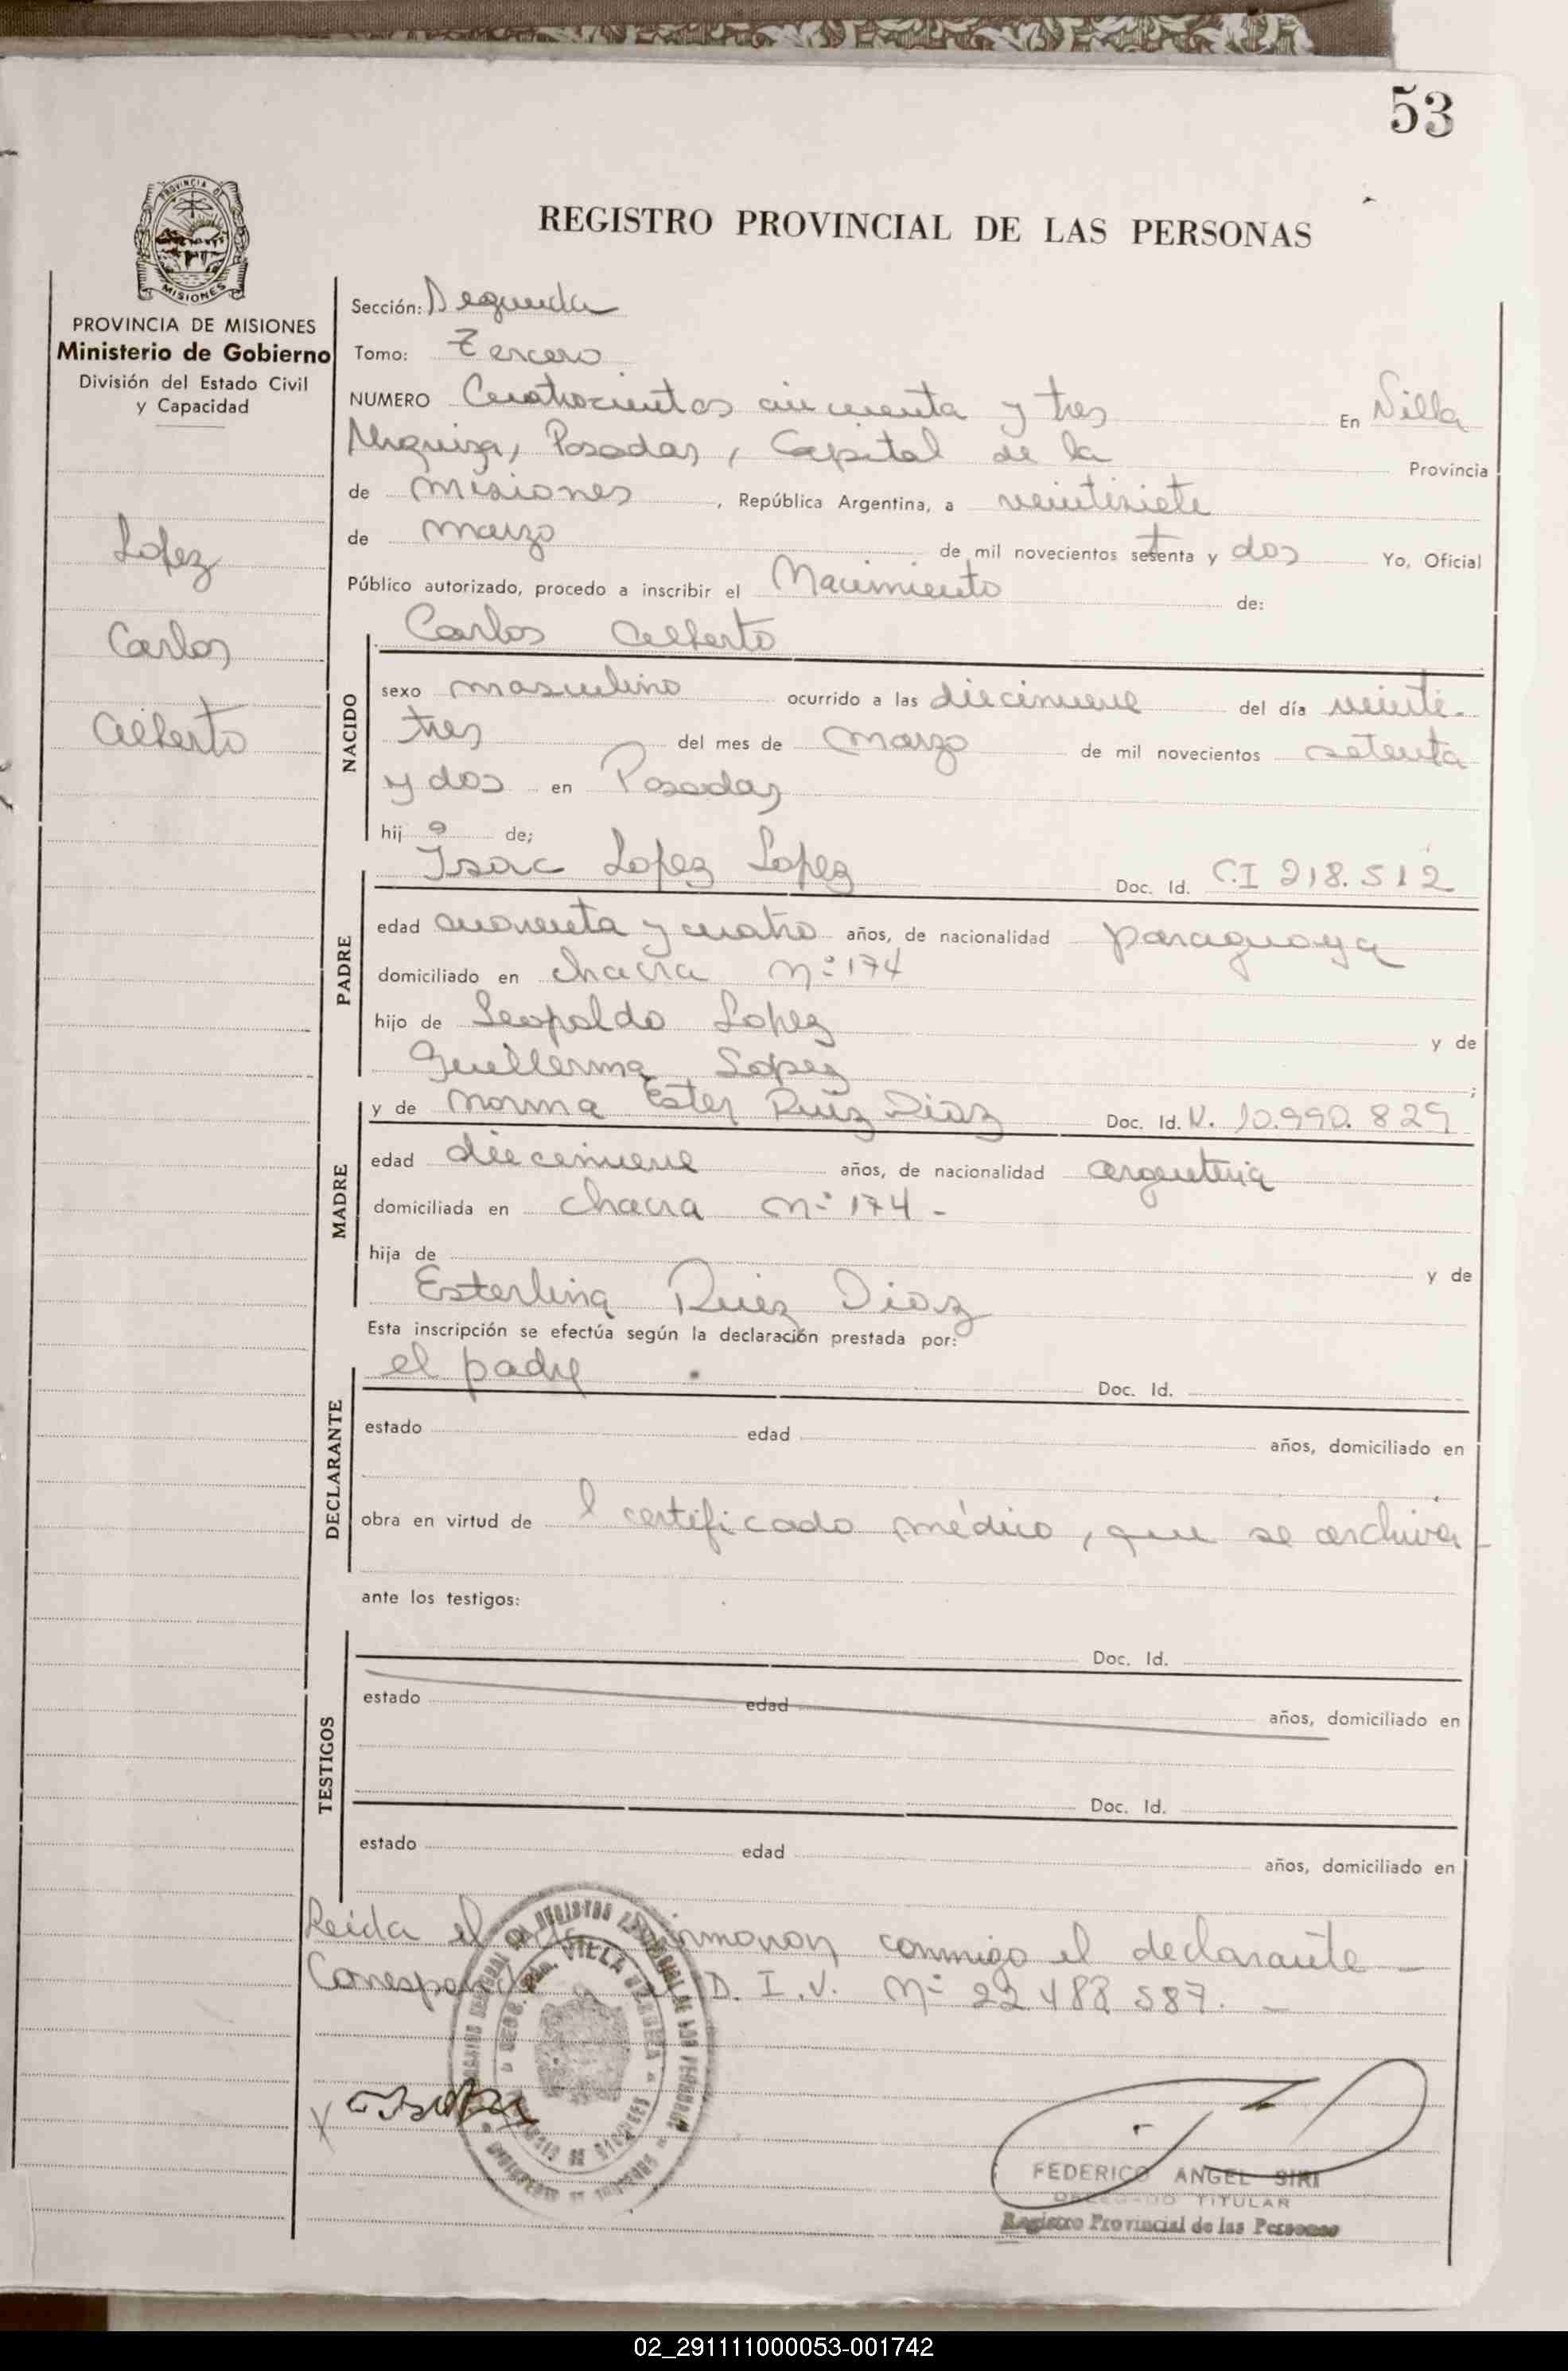 53
PROVINCIA DE MISIONES
REGISTRO PROVINCIAL DE LAS PERSONAS
PROVINCIA DE MISIONES
Ministerio de Gobierno
División del Estado Civil
y Capacidad
Lopez
Carlos
Alberto
Sección: Segunda
Tomo: Tercero
NUMERO Cuatrocientos cincuenta y tres En Villa
Urquiza, Posadas, Capital de la Provincia
de misiones, República Argentina, a veintisiete
de marzo de mil novecientos setenta y dos Yo, Oficial
Público autorizado, procedo a inscribir el Nacimiento de:
NACIDO
Carlos Alberto
sexo masculino ocurrido a las diecinueve del día veinti-
tres del mes de marzo de mil novecientos setenta
y dos en Posadas
hijo de;
PADRE
Isac Lopez Lopez Doc. Id. C.I 218.512
edad cuarenta y cuatro años, de nacionalidad paraguaya
domiciliado en chacra nº 174
hijo de Leopoldo Lopez y de
Guillerma Lopez;
MADRE
y de Norma Ester Ruiz Diaz Doc. Id. N. 10.990.829
edad diecinueve años, de nacionalidad argentina
domiciliada en chacra nº 174 -
hija de y de
Esterlina Ruiz Diaz
Esta inscripción se efectúa según la declaración prestada por:
DECLARANTE
el padre Doc. Id.
estado edad años, domiciliado en
obra en virtud de l certificado médico, que se archiva -
ante los testigos:
TESTIGOS
Doc. Id.
estado edad años, domiciliado en
Doc. Id.
estado edad años, domiciliado en
Leida el acta firmaron conmigo el declarante -
D. I. V. Nº 22 488 587. -
VILLA URQUIZA
FEDERICO ANGEL SIRI
DELEGADO TITULAR
Registro Provincial de las Personas
02_291111000053-001742